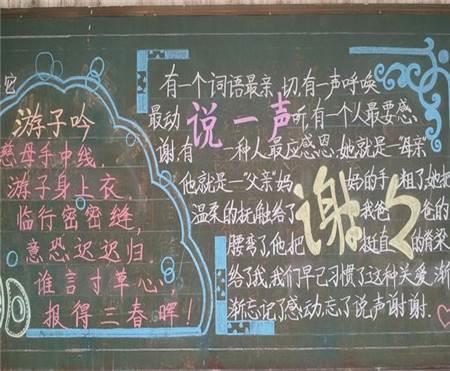 游子吟
慈母手中线,
游子身上衣
临行密密缝,
意恐迟迟归.
谁言寸草心
报得三春晖!
有一个词语最亲切有一声呼唤
最动听有一个人最要感
谢,有一种人最应感恩,她就是“母亲”
他就是“父亲”妈妈的手粗了,她把
温柔的抚触给了我爸爸的
腰弯了,他把挺直的脊梁
给了我,我们早已习惯了这种关爱,渐
渐忘记了感动,忘了说声谢谢.
说一声
谢々